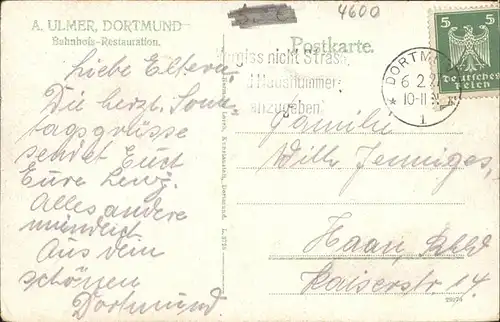 A. ULMER, DORTMUND
Bahnhofs-Restauration.
4600
Postkarte.
Vergiss nicht Strasse
und Hausnummer
anzugeben
DORTMUND
6.2.2
10-11
1
5 5
Deutsches
Reich
Liebe Eltern
Die herzl. Sonn
tagsgrüsse
sendet Euch
Eure
Alles andere
mündlich
Aus dem
schönen
Dortmund
Familie
Willy Jenniges,
Haan, Rhld
Kaiserstr. 14.